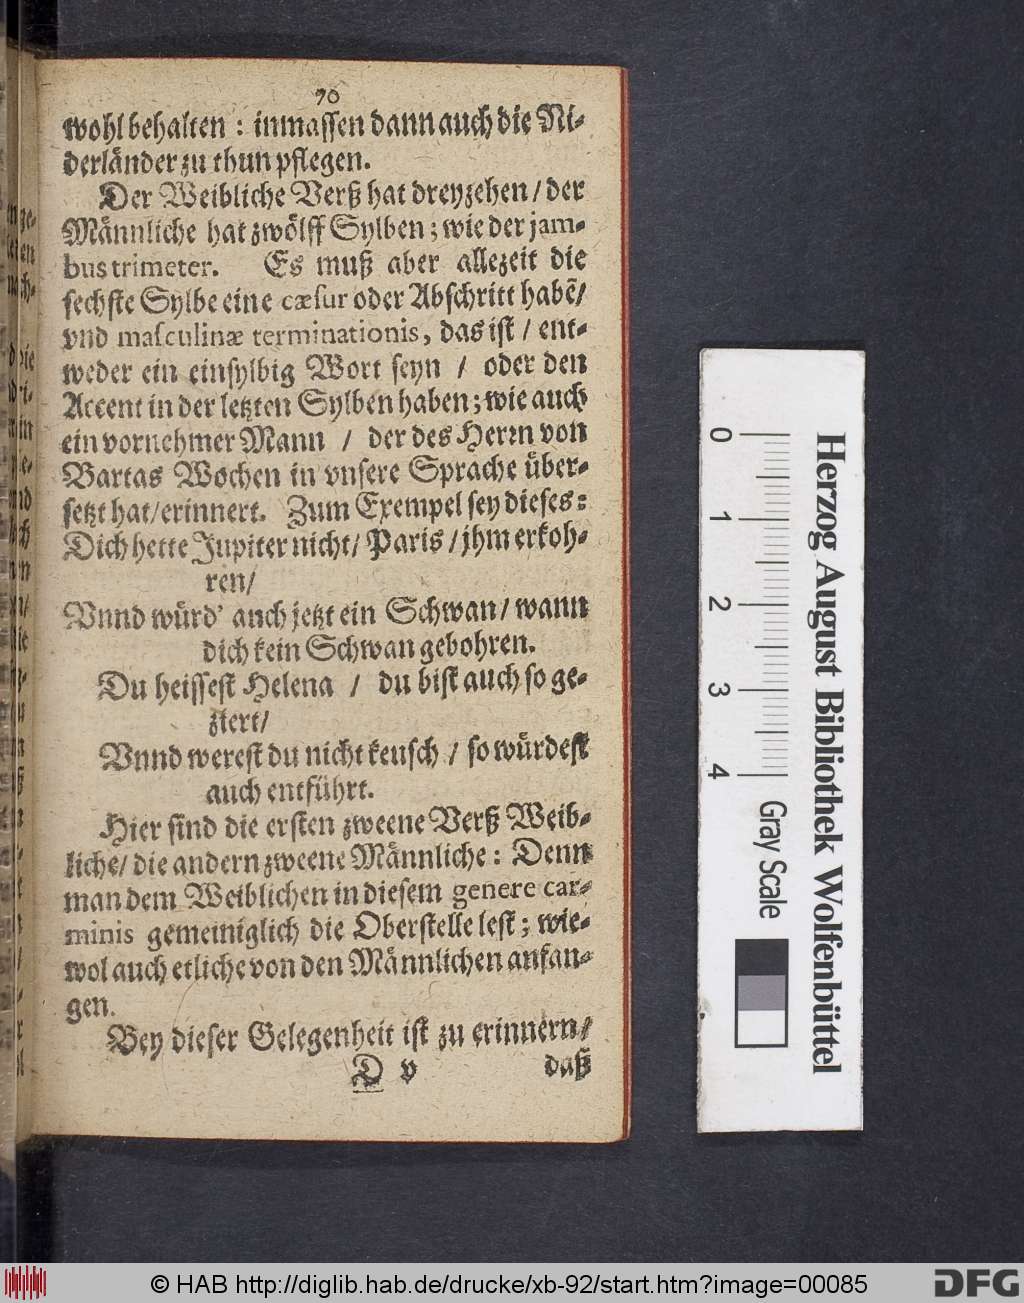 70
wohl behalten : inmassen dann auch die Ni-
derländer zu thun pflegen.
Der Weibliche Verß hat dreyzehen / der
Männliche hat zwölff Sylben ; wie der jam-
bus trimeter. Es muß aber allezeit die
sechste Sylbe eine cæsur oder Abschritt habẽ/
vnd masculinæ terminationis, das ist / ent-
weder ein einsylbig Wort seyn / oder den
Accent in der letzten Sylben haben ; wie auch
ein vornehmer Mann / der des Herrn von
Bartas Wochen in vnsere Sprache über-
setzt hat / erinnert. Zum Exempel sey dieses :
Dich hette Jupiter nicht / Paris / jhm erkoh-
ren/
Vnnd würd' auch jetzt ein Schwan / wann
dich kein Schwan gebohren.
Du heissest Helena / du bist auch so ge-
ziert/
Vnnd werest du nicht keusch / so würdest
auch entführt.
Hier sind die ersten zweene Verß Weib-
liche/ die andern zweene Männliche : Denn
man dem Weiblichen in diesem genere car-
minis gemeiniglich die Oberstelle lest ; wie-
wol auch etliche von den Männlichen anfan-
gen.
Bey dieser Gelegenheit ist zu erinnern/
D v daß
0 1 2 3 4
Gray Scale
Herzog August Bibliothek Wolfenbüttel
© HAB http://diglib.hab.de/drucke/xb-92/start.htm?image=00085
DFG